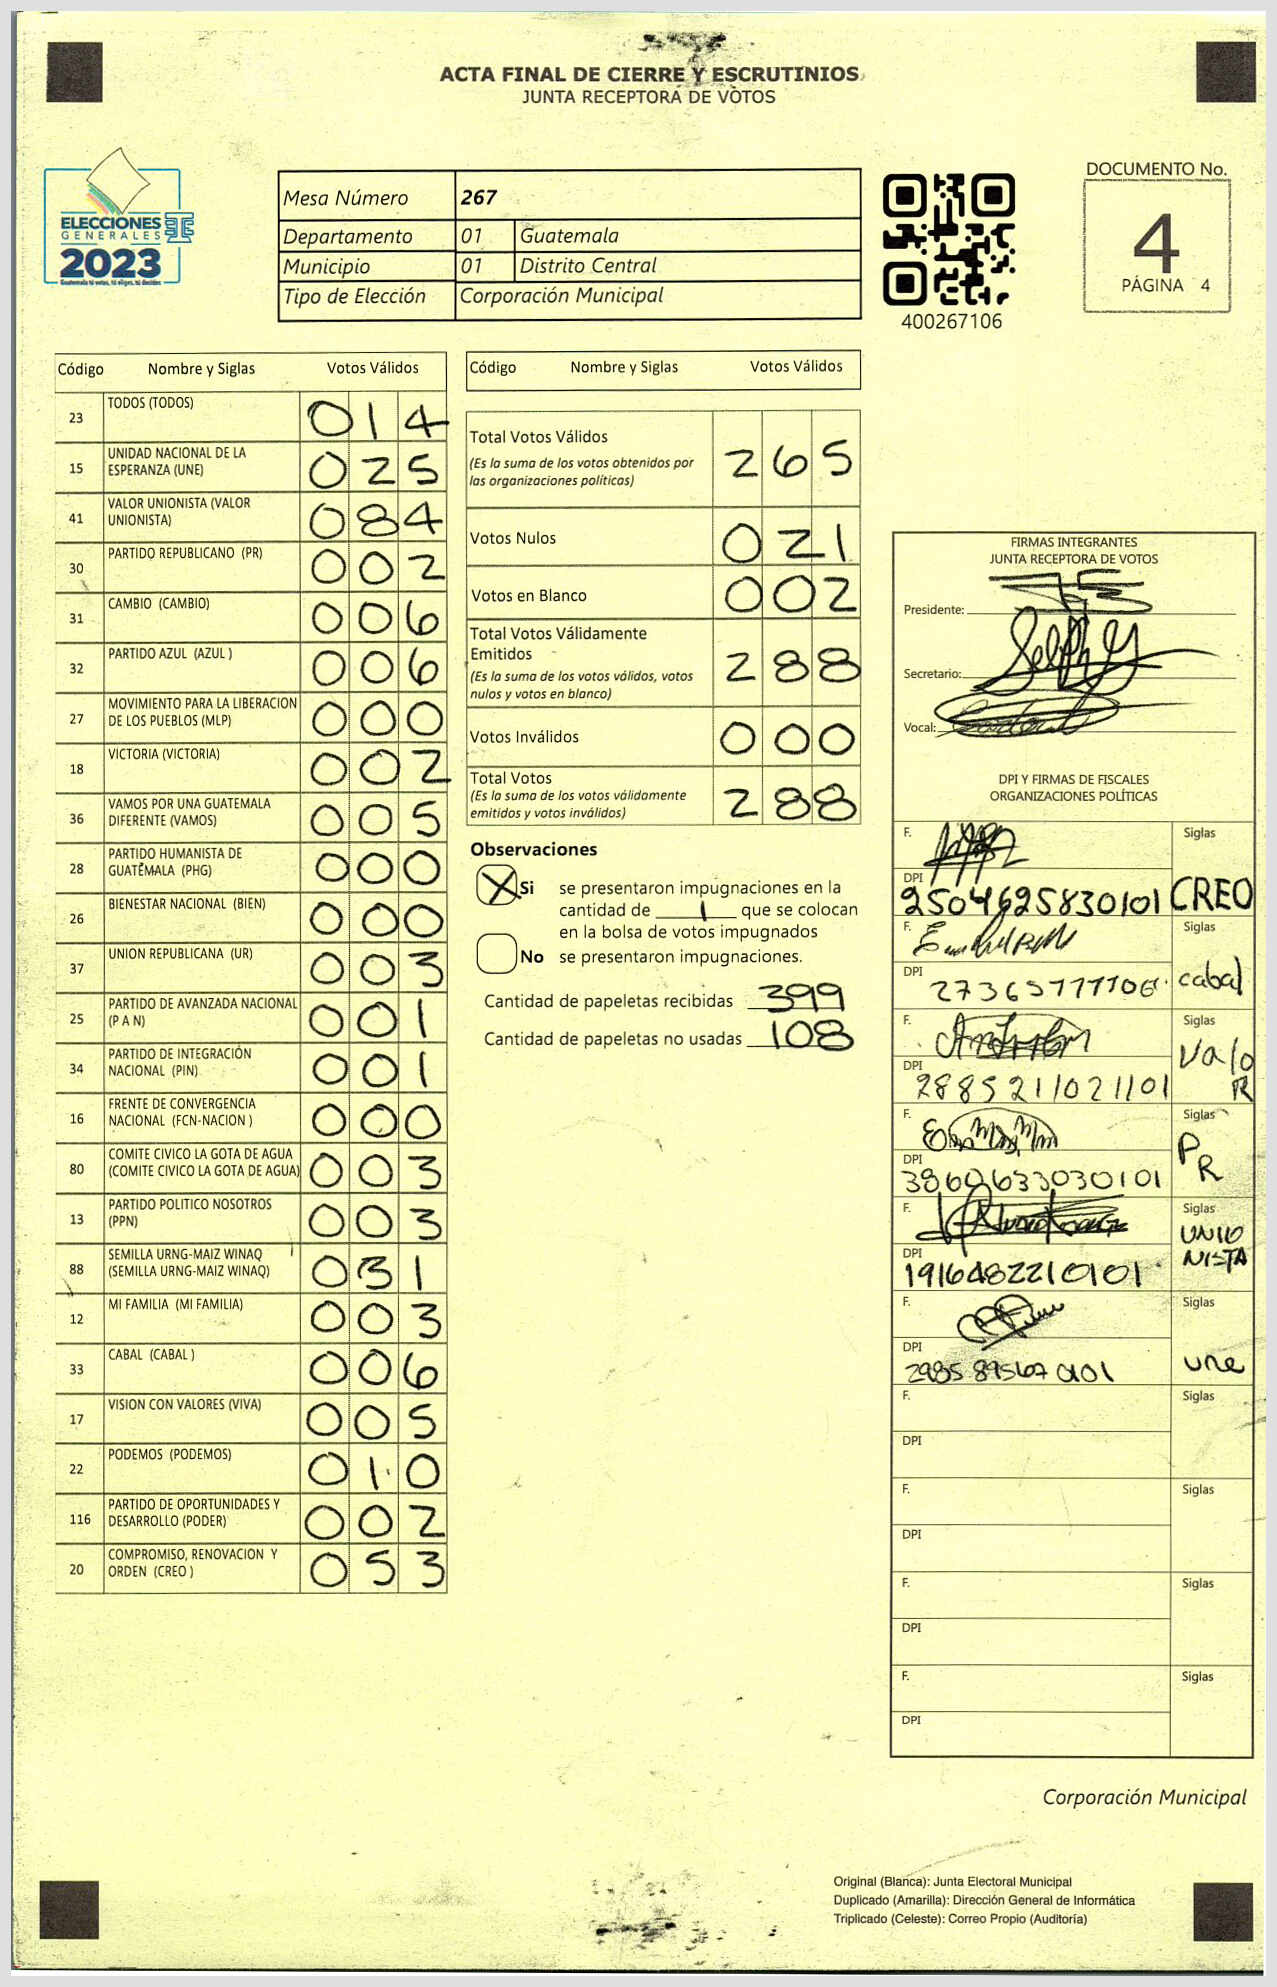 ACTA FINAL DE CIERRE Y ESCRUTINIOS
JUNTA RECEPTORA DE VOTOS
ELECCIONES
GENERALES
2023
Guatemala tú votas, tú eliges, tú decides
Mesa Número 267
Departamento 01 Guatemala
Municipio 01 Distrito Central
Tipo de Elección Corporación Municipal
400267106
DOCUMENTO No.
4
PÁGINA 4
Código Nombre y Siglas Votos Válidos
23 TODOS (TODOS) 014
15 UNIDAD NACIONAL DE LA ESPERANZA (UNE) 025
41 VALOR UNIONISTA (VALOR UNIONISTA) 084
30 PARTIDO REPUBLICANO (PR) 002
31 CAMBIO (CAMBIO) 006
32 PARTIDO AZUL (AZUL ) 006
27 MOVIMIENTO PARA LA LIBERACION DE LOS PUEBLOS (MLP) 000
18 VICTORIA (VICTORIA) 002
36 VAMOS POR UNA GUATEMALA DIFERENTE (VAMOS) 005
28 PARTIDO HUMANISTA DE GUATEMALA (PHG) 000
26 BIENESTAR NACIONAL (BIEN) 000
37 UNION REPUBLICANA (UR) 003
25 PARTIDO DE AVANZADA NACIONAL (P A N) 001
34 PARTIDO DE INTEGRACIÓN NACIONAL (PIN) 001
16 FRENTE DE CONVERGENCIA NACIONAL (FCN-NACION ) 000
80 COMITE CIVICO LA GOTA DE AGUA (COMITE CIVICO LA GOTA DE AGUA) 003
13 PARTIDO POLITICO NOSOTROS (PPN) 003
88 SEMILLA URNG-MAIZ WINAQ (SEMILLA URNG-MAIZ WINAQ) 031
12 MI FAMILIA (MI FAMILIA) 003
33 CABAL (CABAL ) 006
17 VISION CON VALORES (VIVA) 005
22 PODEMOS (PODEMOS) 010
116 PARTIDO DE OPORTUNIDADES Y DESARROLLO (PODER) 002
20 COMPROMISO, RENOVACION Y ORDEN (CREO ) 053
Código Nombre y Siglas Votos Válidos
Total Votos Válidos 265
(Es la suma de los votos obtenidos por
las organizaciones políticas)
Votos Nulos 021
Votos en Blanco 002
Total Votos Válidamente
Emitidos 288
(Es la suma de los votos válidos, votos
nulos y votos en blanco)
Votos Inválidos 000
Total Votos 288
(Es la suma de los votos válidamente
emitidos y votos inválidos)
Observaciones
X Si se presentaron impugnaciones en la
cantidad de 1 que se colocan
en la bolsa de votos impugnados
No se presentaron impugnaciones.
Cantidad de papeletas recibidas 399
Cantidad de papeletas no usadas 108
FIRMAS INTEGRANTES
JUNTA RECEPTORA DE VOTOS
Presidente:
Secretario:
Vocal:
DPI Y FIRMAS DE FISCALES
ORGANIZACIONES POLÍTICAS
F. Siglas
DPI 2504625830101 CREO
F. Siglas
DPI cabal
F. Siglas
DPI 2885211021101 Valo
R
F. Siglas
DPI 3860633030101 P
R
F. Siglas
DPI 1916482210101 UNIO
NISTA
F. Siglas
DPI 2985895670101 une
F. Siglas
DPI
F. Siglas
DPI
F. Siglas
DPI
F. Siglas
DPI
Corporación Municipal
Original (Blanca): Junta Electoral Municipal
Duplicado (Amarilla): Dirección General de Informática
Triplicado (Celeste): Correo Propio (Auditoría)